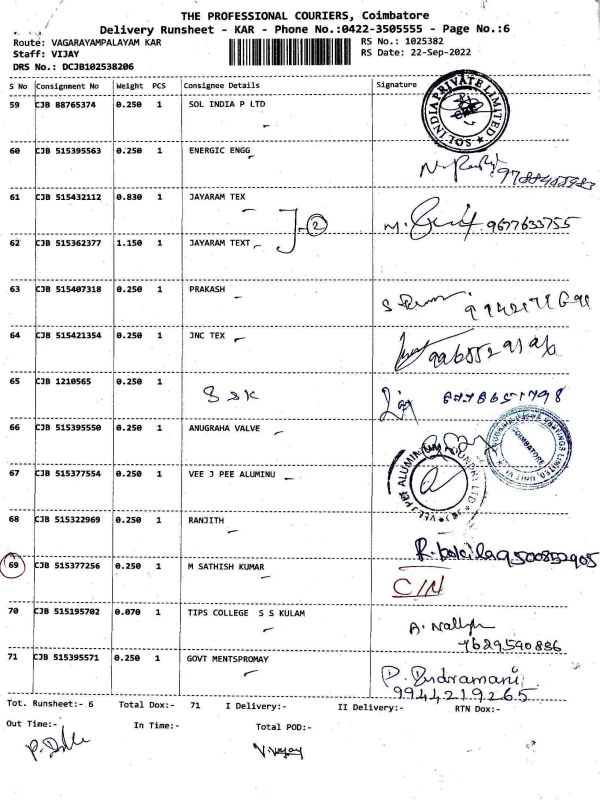 THE PROFESSIONAL COURIERS, Coimbatore
Delivery Runsheet - KAR - Phone No.:0422-3505555 - Page No.:6
Route: VAGARAYAMPALAYAM KAR RS No.: 1025382
Staff: VIJAY RS Date: 22-Sep-2022
DRS No.: DCJB102538206
S No Consignment No Weight PCS Consignee Details Signature
59 CJB 88765374 0.250 1 SOL INDIA P LTD SOL INDIA PRIVATE LIMITED
60 CJB 515395563 0.250 1 ENERGIC ENGG
61 CJB 515432112 0.830 1 JAYARAM TEX
2 M. 9677633755
62 CJB 515362377 1.150 1 JAYARAM TEXT
63 CJB 515407318 0.250 1 PRAKASH
64 CJB 515421354 0.250 1 JNC TEX
65 CJB 1210565 0.250 1 SSK
66 CJB 515395550 0.250 1 ANUGRAHA VALVE COIMBATORE
67 CJB 515377554 0.250 1 VEE J PEE ALUMINU VEE J PEE ALUMINIUM FOUNDRY LTD
68 CJB 515322969 0.250 1 RANJITH
9500852905
69 CJB 515377256 0.250 1 M SATHISH KUMAR C/N
70 CJB 515195702 0.070 1 TIPS COLLEGE S S KULAM A.
7629590886
71 CJB 515395571 0.250 1 GOVT MENTSPROMAY P. Indramani
9944219265
Tot. Runsheet:- 6 Total Dox:- 71 I Delivery:- II Delivery:- RTN Dox:-
Out Time:- In Time:- Total POD:-
V Vijay